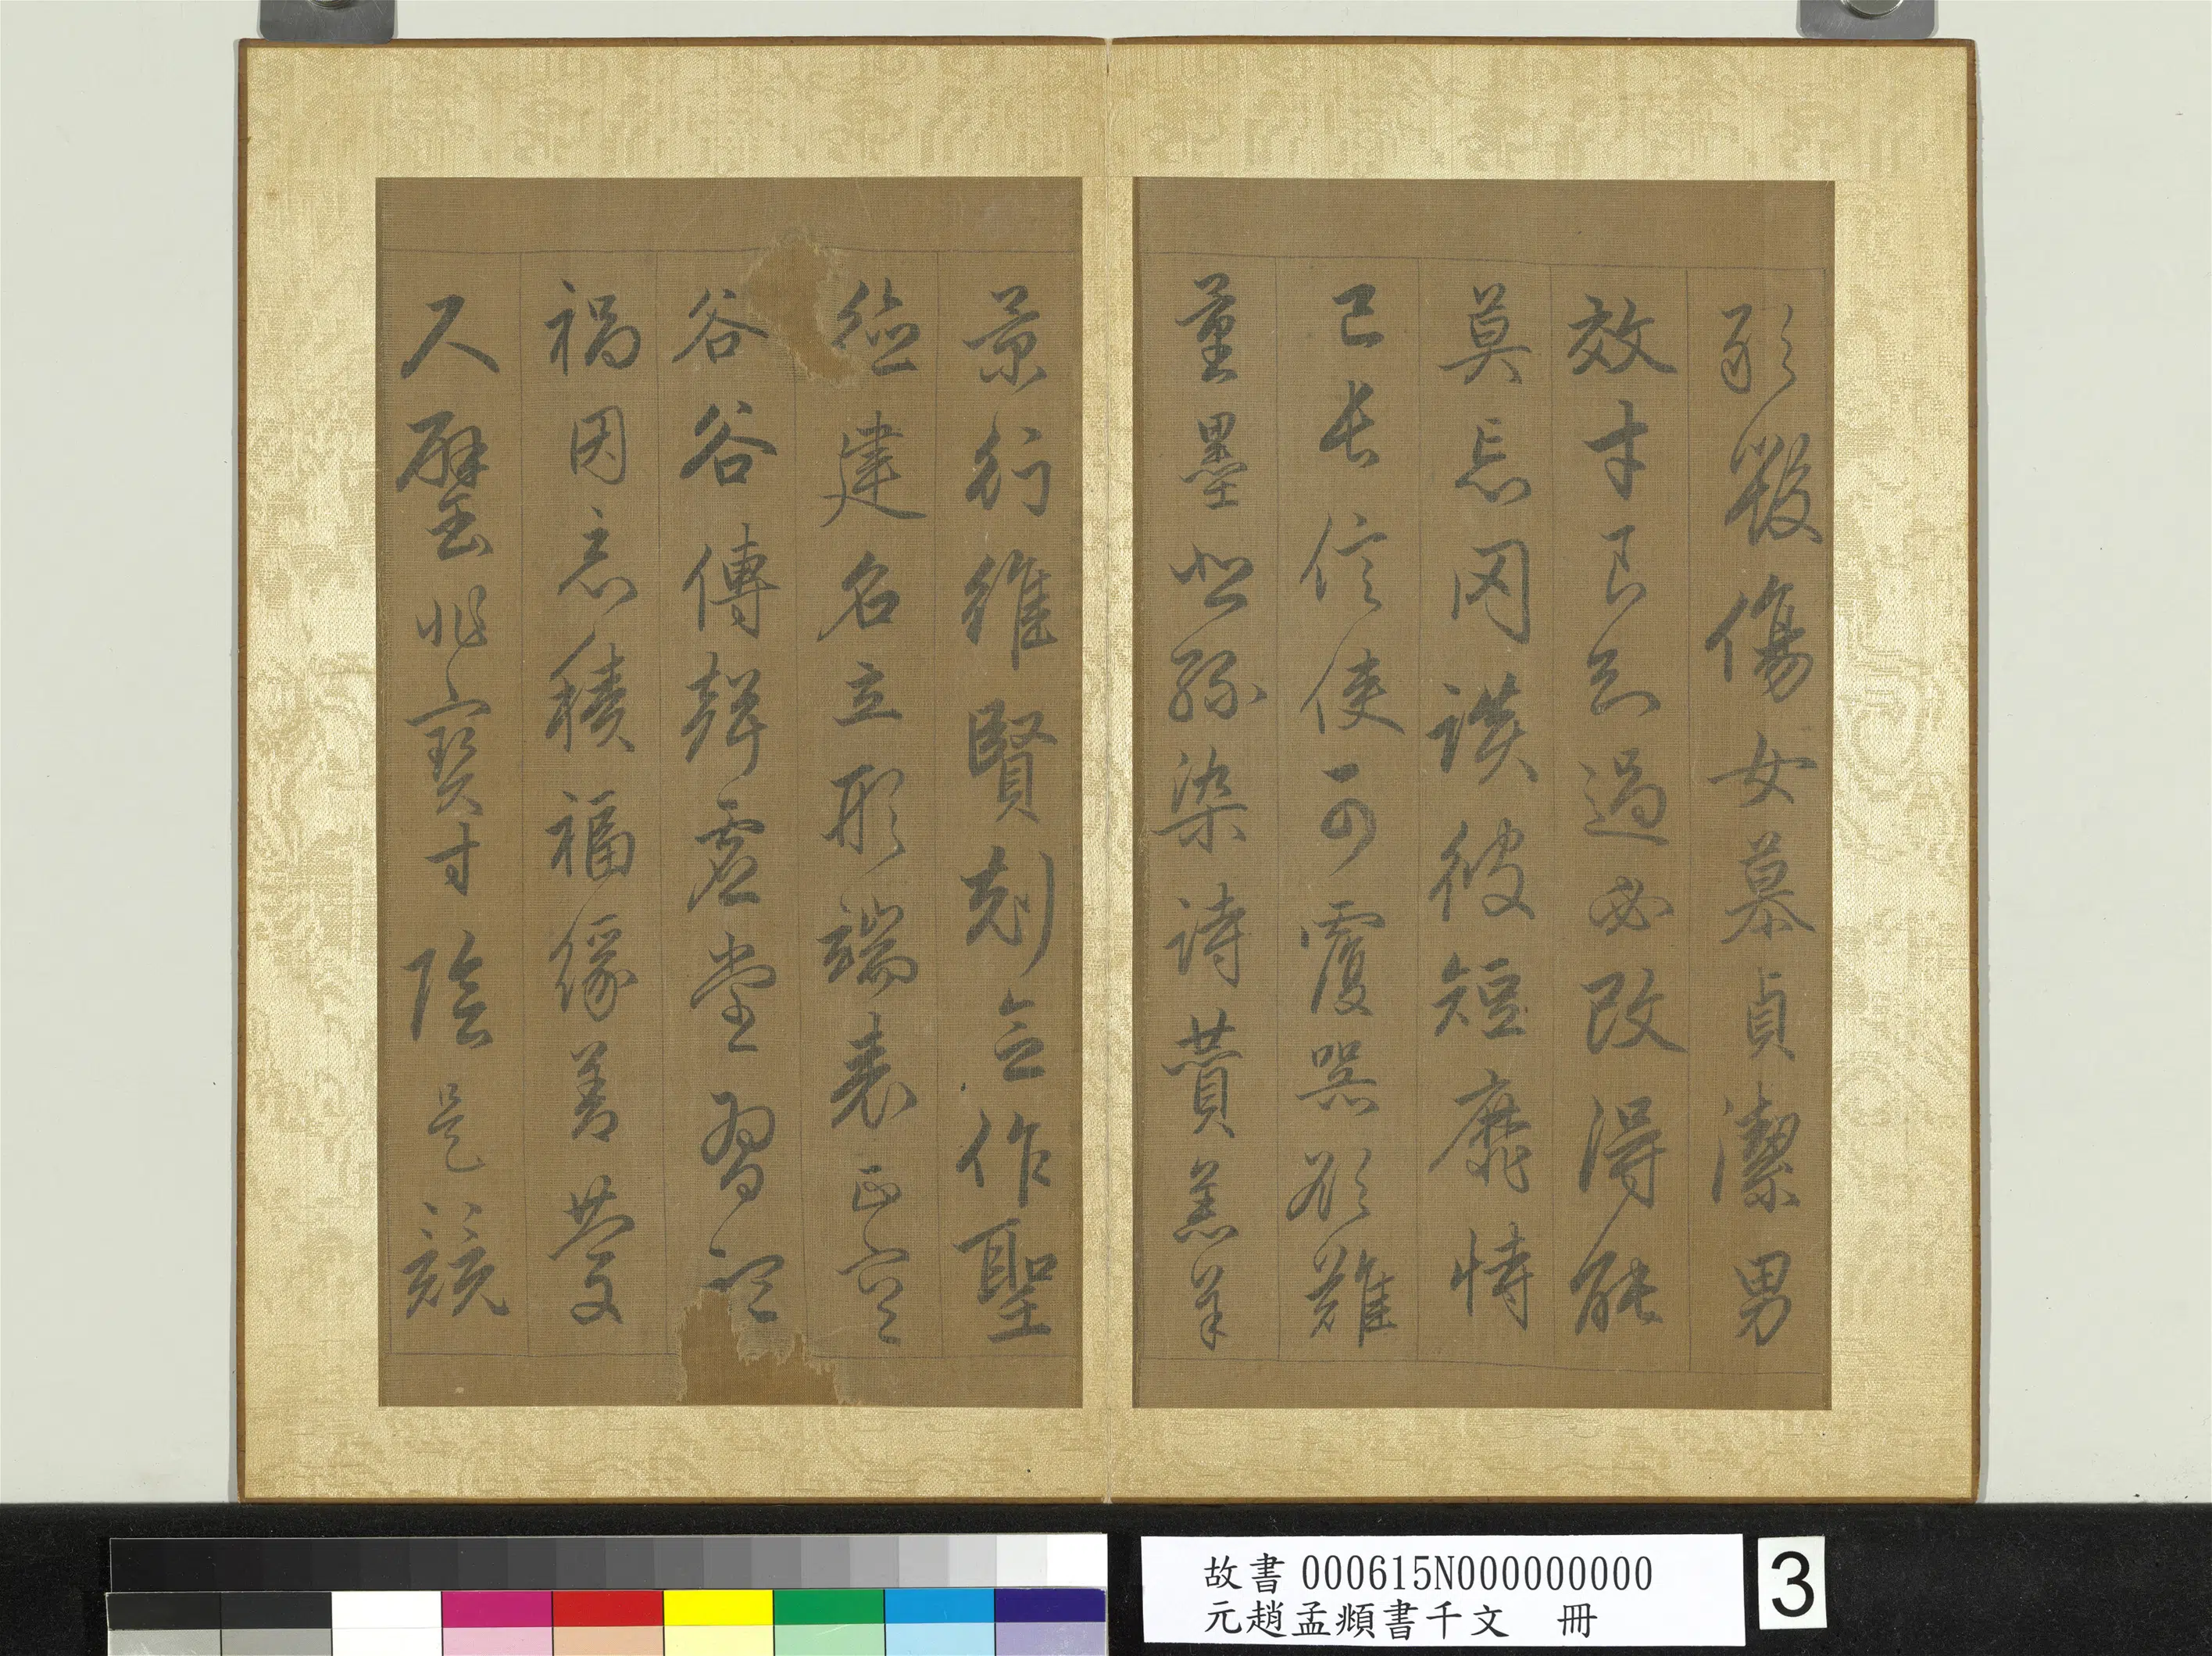 敢毀傷女慕貞潔男
效才良知過必改得能
莫忘罔談彼短靡恃
己長信使可覆器欲難
量墨悲絲染詩贊羔羊
景行維賢剋念作聖
德建名立形端表正空
谷谷傳聲虛堂習聽
禍因惡積福緣善慶
尺璧非寶寸陰是競
故書 000615N000000000
元趙孟頫書千文 冊
3